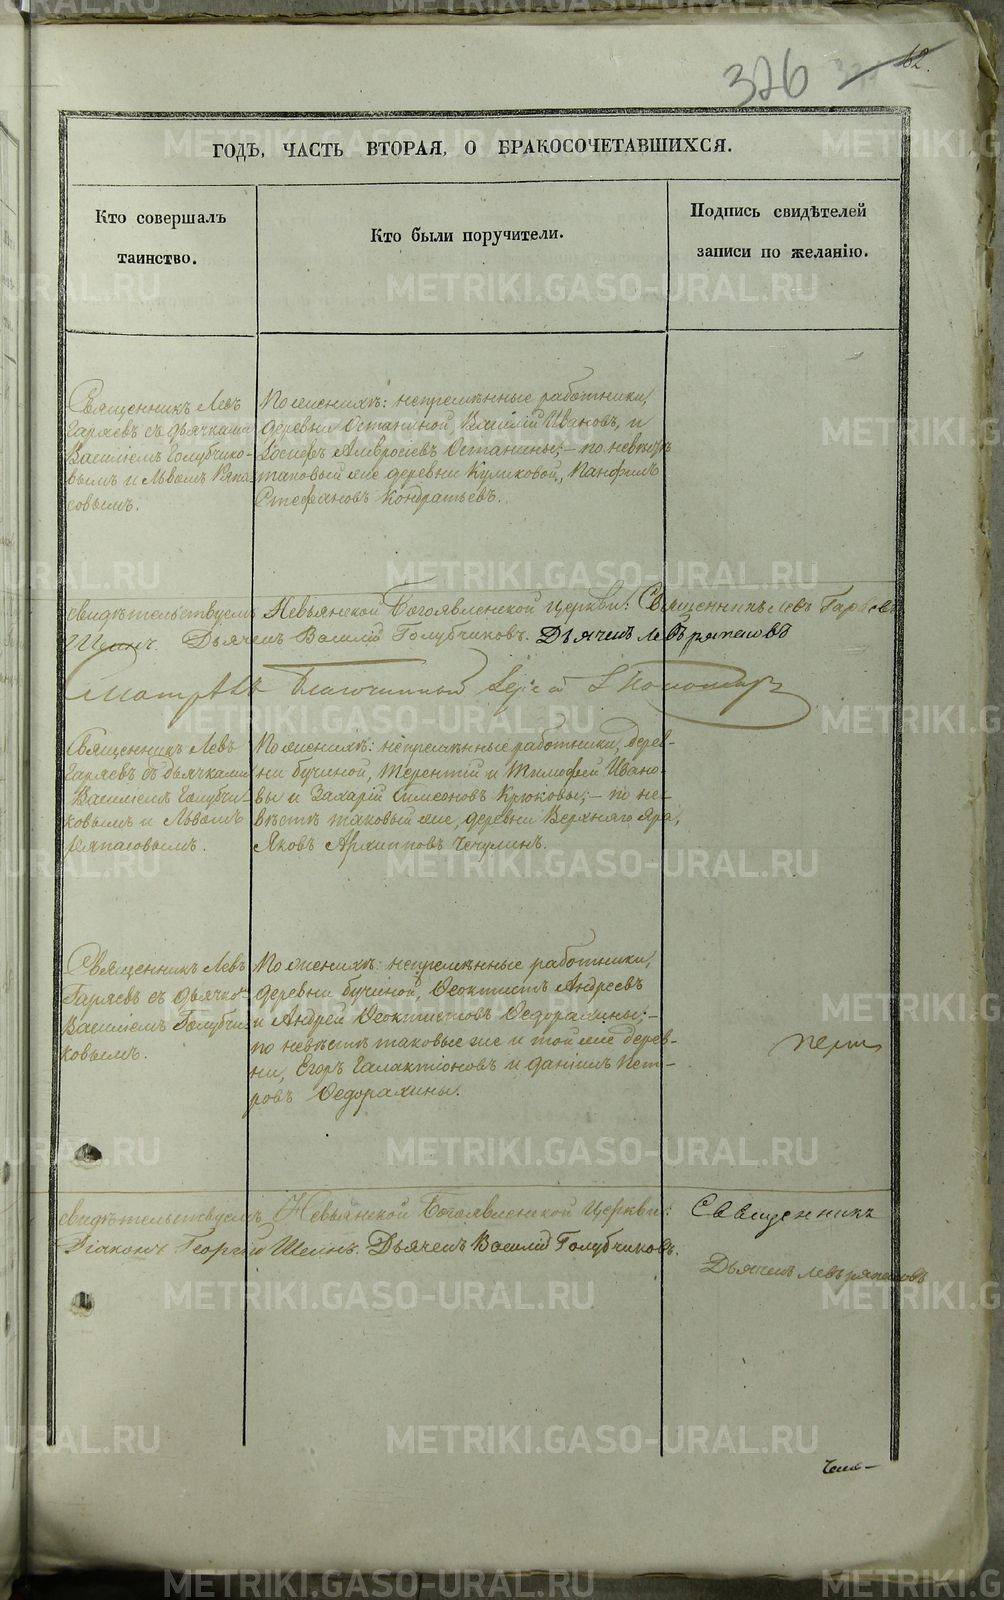 326
62.
ГОДЪ, ЧАСТЬ ВТОРАЯ, О БРАКОСОЧЕТАВШИХСЯ.
Кто совершалъ
таинство.
Кто были поручители.
Подпись свидѣтелей
записи по желанію.
Священникъ Левъ
Гаряевъ съ дьячками
Василіемъ Голубчико-
вымъ и Львомъ Ряпа-
совымъ.
По женихѣ: непремѣнные работники,
деревни Останиной Василій Ивановъ, и
Іосифъ Амвросіевъ Останины; – по невѣстѣ
таковый же деревни Куликовой, Панфилъ
Стефановъ Кондратьевъ.
свидѣтельствуемъ Невьянской Богоявленской церкви: Священникъ Левъ Гаряевъ
Шеинъ. Дьячекъ Василій Голубчиковъ. Дьячекъ Левъ Ряпасовъ
Благочинный
Священникъ Левъ
Гаряевъ съ дьячками
Василіемъ Голубчи-
ковымъ и Львомъ
Ряпасовымъ.
По женихѣ: непремѣнные работники, дерев-
ни бучиной, Терентій и Тимофей Ивано-
вы и Захарій Симеоновъ Крюковы; – по не-
вѣстѣ таковый же, деревни Верхняго Яра,
Яковъ Архиповъ Чечулинъ.
Священникъ Левъ
Гаряевъ съ дьячко-
Василіемъ Голубчи-
ковымъ.
По женихѣ: непремѣнные работники,
деревни бучиной, Ѳеоктистъ Андреевъ
и Андрей Ѳеоктистовъ Ѳедорахины; –
по невѣстѣ таковые же и той же дерев-
ни, Егоръ Галактіоновъ и Даніилъ Пет-
ровъ Ѳедорахины.
свидѣтельствуемъ Невьянской Богоявленской церкви: Священникъ
Діаконъ Георгій Шеинъ. Дьячекъ Василій Голубчиковъ.
Дьячекъ Левъ Ряпасовъ
METRIKI.GASO-URAL.RU